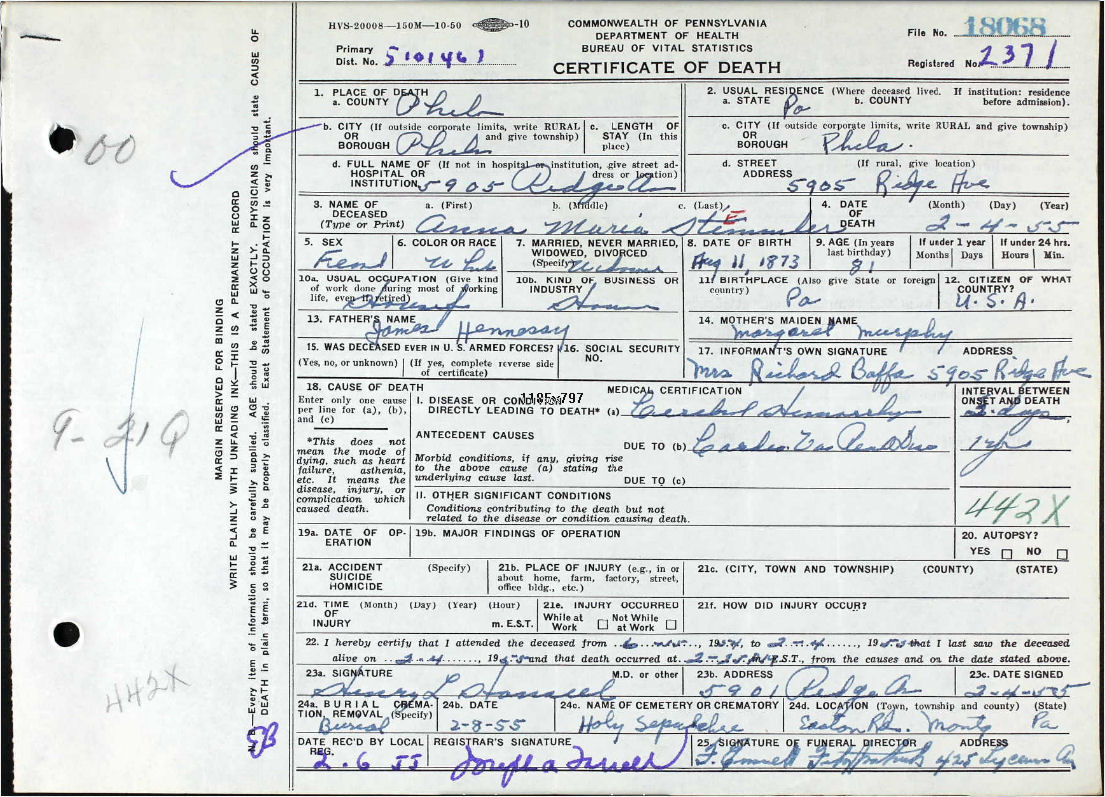 HVS-20008—150M—10-50 -10
COMMONWEALTH OF PENNSYLVANIA
DEPARTMENT OF HEALTH
BUREAU OF VITAL STATISTICS
CERTIFICATE OF DEATH
File No. 18068
Primary Dist. No. 5101461
Registered No. 2371
1. PLACE OF DEATH
a. COUNTY Phila
b. CITY (If outside corporate limits, write RURAL
OR and give township)
BOROUGH Phila
c. LENGTH OF
STAY (In this
place)
d. FULL NAME OF (If not in hospital or institution, give street ad-
HOSPITAL OR dress or location)
INSTITUTION 5905 Ridge Av
2. USUAL RESIDENCE (Where deceased lived. If institution: residence
a. STATE Pa b. COUNTY before admission).
c. CITY (If outside corporate limits, write RURAL and give township)
OR
BOROUGH Phila.
d. STREET (If rural, give location)
ADDRESS 5905 Ridge Ave
3. NAME OF DECEASED (Type or Print)
a. (First) b. (Middle) c. (Last)
Anna Maria
E
4. DATE OF DEATH (Month) (Day) (Year)
2-4-55
5. SEX
6. COLOR OR RACE
7. MARRIED, NEVER MARRIED,
WIDOWED, DIVORCED
(Specify)
8. DATE OF BIRTH
Aug 11, 1873
9. AGE (In years
last birthday)
81
If under 1 year
Months Days
If under 24 hrs.
Hours Min.
10a. USUAL OCCUPATION (Give kind
of work done during most of working
life, even if retired)
10b. KIND OF BUSINESS OR
INDUSTRY
11. BIRTHPLACE (Also give State or foreign
country) Pa
12. CITIZEN OF WHAT
COUNTRY?
U.S.A.
13. FATHER'S NAME
James Hennessy
14. MOTHER'S MAIDEN NAME
Margaret Murphy
15. WAS DECEASED EVER IN U. S. ARMED FORCES?
(Yes, no, or unknown) (If yes, complete reverse side
of certificate)
16. SOCIAL SECURITY
NO.
17. INFORMANT'S OWN SIGNATURE ADDRESS
Mrs Richard Baffa 5905 Ridge Ave
18. CAUSE OF DEATH
Enter only one cause
per line for (a), (b),
and (c)
*This does not
mean the mode of
dying, such as heart
failure, asthenia,
etc. It means the
disease, injury, or
complication which
caused death.
MEDICAL CERTIFICATION
I. DISEASE OR CONDITION
DIRECTLY LEADING TO DEATH* (a)
ANTECEDENT CAUSES
DUE TO (b)
Morbid conditions, if any, giving rise
to the above cause (a) stating the
underlying cause last.
DUE TO (c)
II. OTHER SIGNIFICANT CONDITIONS
Conditions contributing to the death but not
related to the disease or condition causing death.
INTERVAL BETWEEN
ONSET AND DEATH
442X
19a. DATE OF OP-
ERATION
19b. MAJOR FINDINGS OF OPERATION
20. AUTOPSY?
YES NO
21a. ACCIDENT (Specify)
SUICIDE
HOMICIDE
21b. PLACE OF INJURY (e.g., in or
about home, farm, factory, street,
office bldg., etc.)
21c. (CITY, TOWN AND TOWNSHIP) (COUNTY) (STATE)
21d. TIME (Month) (Day) (Year) (Hour)
OF
INJURY m. E.S.T.
21e. INJURY OCCURRED
While at Work Not While at Work
21f. HOW DID INJURY OCCUR?
22. I hereby certify that I attended the deceased from , 1954, to 2-4, 1955 that I last saw the deceased
alive on 2-4, 1955 and that death occurred at E.S.T., from the causes and on the date stated above.
23a. SIGNATURE M.D. or other
Henry L
23b. ADDRESS
5901 Ridge Av
23c. DATE SIGNED
2-4-55
24a. BURIAL CREMA-
TION, REMOVAL (Specify)
Burial
24b. DATE
2-8-55
24c. NAME OF CEMETERY OR CREMATORY
Holy Sepulchre
24d. LOCATION (Town, township and county) (State)
Easton Rd. Montg Pa
DATE REC'D BY LOCAL
REG.
2. 6 55
REGISTRAR'S SIGNATURE
Joseph A Farrell
25. SIGNATURE OF FUNERAL DIRECTOR ADDRESS
F. Emmett Fitzpatrick 425 Lyceum Av
MARGIN RESERVED FOR BINDING
WRITE PLAINLY WITH UNFADING INK—THIS IS A PERMANENT RECORD
N. B.—Every item of information should be carefully supplied. AGE should be stated EXACTLY. PHYSICIANS should state CAUSE OF
DEATH in plain terms, so that it may be properly classified. Exact Statement of OCCUPATION is very important.
00
442X